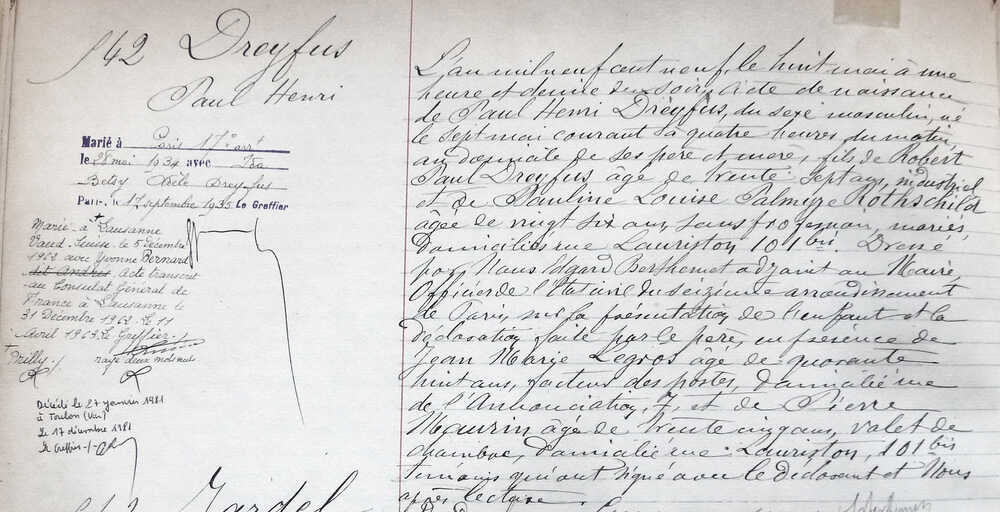 942 Dreyfus
Paul Henri
Marié à Paris 17e arrt
le 28 mai 1934 avec
Betsy Adèle Dreyfus
Paris, le 17 septembre 1935 Le Greffier
Marié à + Lausanne
Vaud-Suisse le 5 décembre
1962 avec Yvonne Bernard
dit Andres Acte transcrit
au Consulat Général de
France à Lausanne le
31 Décembre 1962 le 11
Avril 1963 Le Greffier
+ Prilly rayé deux mots nuls
Décédé le 27 janvier 1981
à Toulon (Var)
Le 17 décembre 1981
le Greffier
L'an mil neuf cent neuf, le huit mai à une
heure et demie du soir, Acte de naissance
de Paul Henri Dreyfus, du sexe masculin, né
le sept mai courant à quatre heures du matin,
au domicile de ses père et mère, fils de Robert
Paul Dreyfus âgé de trente sept ans, industriel
et de Pauline Louise Palmyre Rothschild
âgée de vingt six ans, sans profession, mariés,
domiciliés rue Lauriston 101 bis. Dressé
par Nous Edgard Berthemet adjoint au Maire,
Officier de l'Etat civil du seizième arrondissement
de Paris, sur la présentation de l'enfant et la
déclaration faite par le père, en présence de
Jean Marie Legros âgé de quarante
huit ans, facteur des postes, domicilié rue
de l'Annonciation, 7, et de Pierre
Maurin âgé de trente cinq ans, valet de
chambre, domicilié rue Lauriston, 101 bis
témoins qui ont signé avec le déclarant et Nous
après lecture.